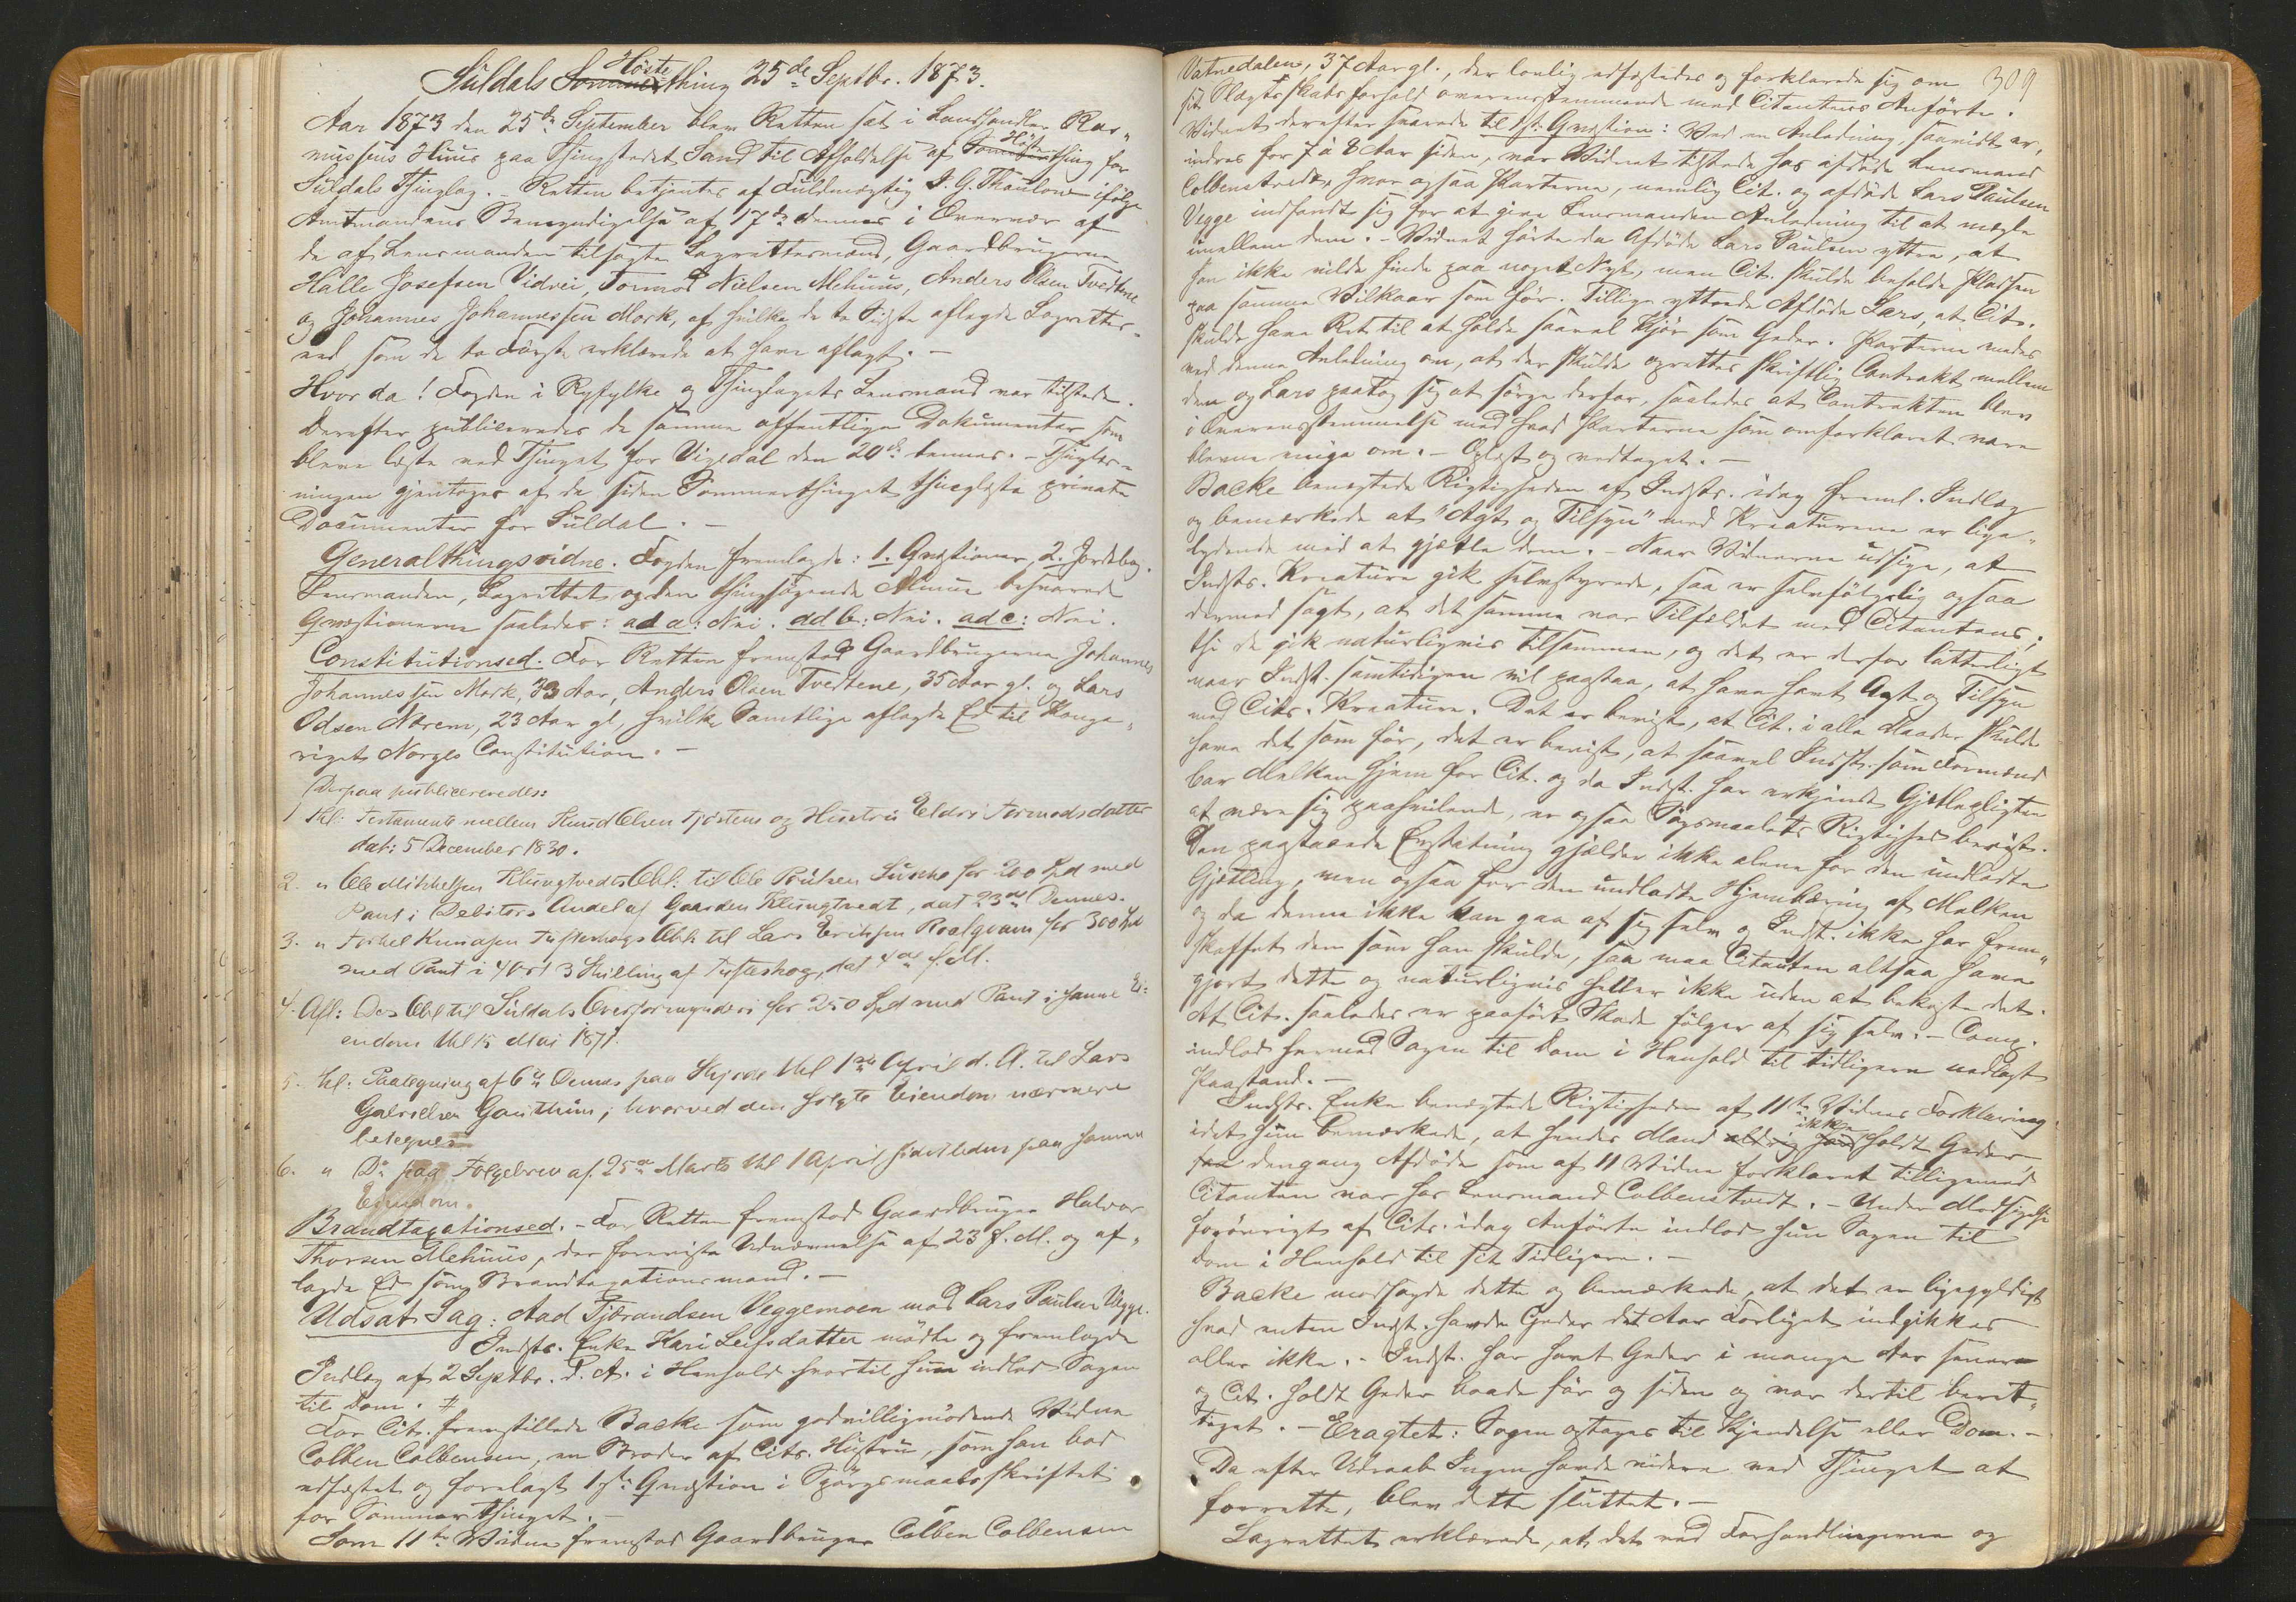 Süldals Sommerthing Höste 25de Septbr. 1873.
Aar 1873 den 25de September blev Retten sat i Landhandler Ras„
mussens Huus paa Thingstedet Sand til Afholdelse af Sommerthing Höste for
Süldals Thinglag. – Retten betjentes af Fuldmægtig J. G. Thaulow ifölge
Amtmandens Bemyndigelse af 17de dennes i Overvær af
de af Lensmanden tilsagte Lagrettesmænd, Gaardbrugerne
Halle Josefsen Vidvei, Tormod Nielsen Mehuus, Anders Olsen Tvedtene
og Johannes Johannessen Mork, af hvilke de to Sidste aflagde Lagrettes„
ed som de to Förste erklærede at have aflagt. –
Hvorda! Fogden i Ryfylke og Thinglagets Lensmand var tilstede.
Derefter publiceredes de samme offentlige Dokumenter som
bleve læste ved Thinget for Vigedal den 20de dennes. – Thinglæs„
ningen gjentoges af de siden Sommerthinget thinglæste private
Documenter for Süldal. –
Generalthingsvidne. Fogden fremlagde: 1. Qvæstioner, 2. Jordebog.
Lensmanden, Lagrettet og den thingsögende Almue besvarede
Qvæstionerne saaledes: ad a: Nei. ad b: Nei. ad c: Nei.
Constitutionsed. For Retten fremstod Gaardbrugerne Johannes
Johannessen Mork, 33 Aar, Anders Olsen Tvedtene, 35 Aar gl. og Lars
Odsen Nærem, 23 Aar gl, hvilke Samtlige aflagde Ed til Konge„
riget Norges Constitution. –
Derpaa publiceredes:
1 Thl: Testamente mellem Knud Olsen Tjöstem og Hustru Eldri Tormodsdatter
dat: 5 December 1830.
2. " Ole Mikkelsen Klungtvedts Obl: til Ole Poulsen for 200 Spd med
Pant i Debitors Andel af Gaarden Klungtvedt, dat 23de Dennes.
3. " Torkel Knudsen Tufteskogs Obl: til Lars Eriksen Roalqvam for 300 Spd
med Pant i 4 Ort 3 Skilling af Tufteskog, dat 4de f. M.
4. Afl: Des Obl til Süldals Overformynderi for 250 Spd med Pant i samme Ei:
endom thl 15 Mai 1871.
5. thl: Paategning af 6te Dennes paa Skjøde thl 1ste April d. A. til Lars
Gabrielsen Gauthun, hvorved den solgte Eiendom nærmere
betegnes
6. " Do paa Folgebrev af 25de Marts thl 1 April sidstleden paa samme
Eiendom.
Brandtaxationsed. – For Retten fremstod Gaardbruger Halvor
Thorsen Mehuus, der foreviste Udnævnelse af 23 f. M. og af„
lagde Ed som Brandtaxationsmand. –
Udsat Sag: Aad Tjærandsen Veggemoen mod Lars Paulsen Vegge.
Indst. Enke Kari Leifsdatter mödte og fremlagde
Indlæg af 2 Septbr. d. A. i Henhold hvortil hun indlod Sagen
til Dom. #
For Cit. fremstillede Backe som godvilligmödende Vidne
Colben Colbensen, en Broder af Cits. Hustru, som han bad
edfæstet og forelagt 1ste Qvæstion i Spörgsmaalsskriftet
for Sommerthinget. –
Som 11te Vidne fremstod Gaardbruger Colben Colbensen
309
Vatnedalen, 37 Aar gl., der lovlig edfæstedes og forklarede sig om
sit Slægtsskabsforhold overensstemmende med Citantens Anförte.
Vidnet derefter svarede til 1ste Qvæstion: Ved en Anledning, saavidt er„
indres for 7 à 8 Aar siden, var Vidnet tilstede hos afdöde Lensmand
Colbenstvedt, hvor ogsaa Parterne, nemlig Cit. og afdöde Lars Paulsen
Vegge indfandt sig for at give Lensmanden Anledning til at mægle
imellem dem. – Vidnet hörte da Afdöde Lars Paulsen yttre, at
han ikke vilde finde paa noget Nyt, men Cit. skulde beholde Pladsen
paa samme Vilkaar som för. Tillige yttrede Afdöde Lars, at Cit.
skulde have Ret til at holde saavel Kjör som Geder. Parterne enedes
ved denne Anledning om, at der skulde oprettes skriftlig Contrakt mellem
dem og Lars paatog sig at sörge derfor, saaledes at Contrakten blev
i Overensstemmelse med hvad Parterne som omforklaret vare
blevne enige om. – Oplæst og vedtaget. –
Backe benegtede Rigtigheden af Indsts. idag freml. Indlæg
og bemærkede at "Agt og Tilsyn" med Kreaturene er lige„
lydende med at gjætle dem. – Naar Vidnerne udsige, at
Indsts. Kreature gik selvstyrede, saa er selvfölgelig ogsaa
dermed sagt, at det samme var Tilfældet med Citantens,
thi de gik naturligvis tilsammen, og det er derfor latterligt
naar Indst. samtidigen vil paastaa, at have havt Agt og Tilsyn
med Cits. Kreature. Det er bevist, at Cit. i alle Maader skulde
have det som för, det er bevist, at saavel Indst. som Formænd
bar Melken hjem for Cit. og da Indst. har erkjendt Gjætlepligten
at være sig paahvilende, er ogsaa Sögsmaalets Rigtighed bevist.
Den paastaaede Erstatning gjælder ikke alene for den undladte
Gjætling, men ogsaa for den undladte Hjembæring af Melken
og da denne ikke kan gaa af sig selv og Indst. ikke har frem„
skaffet dem som han skulde, saa maa Citanten altsaa have
gjort dette og naturligvis heller ikke uden at bekoste det.
At Cit. saaledes er paafört Skade fölger af sig selv. – Comp.
indlod hermed Sagen til Dom i Henhold til tidligere nedlagt
Paastand. –
Indsts. Enke benegtede Rigtigheden af 11te Vidnes Forklaring
idet hun bemærkede, at hendes Mand aldrig ikke holdt Geder
dengang Afdöde som af 11 Vidne forklaret tilligemed
Citanten var hos Lensmand Colbenstvedt. – Under Modsigelse
forövrigt af Cits. idag Anförte indlod hun Sagen til
Dom i Henhold til sit Tidligere. –
Backe modsagde dette og bemærkede, at det er ligegyldigt
hvad enten Indst. havde Geder det Aar Forliget indgikkes
eller ikke. – Indst. har havt Geder i mange Aar senere
og Cit. holdt Geder baade för og siden og var dertil beret„
tiget. – Eragtet: Sagen optages til Kjendelse eller Dom. –
Da efter Udraab Ingen havde videre ved Thinget at
forrette, blev dette sluttet. –
Lagrettet erklærede, at det ved Forhandlingerne og